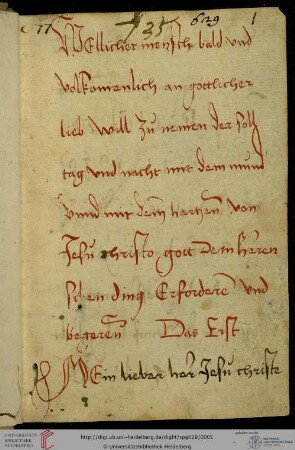 77 735 629 1
Wellicher mensch bald vnd
volkomenlich an gottlicher
lieb will zu nemen der soll
tag vnd nacht mit dem mund
vnnd mit dem hertzen von
Jesu christo gott dem herren
ding Erforderen vnd
begeren Das Eist
Mein lieber her Jesu christe
UNIVERSITÄTS-
BIBLIOTHEK
HEIDELBERG
http://digi.ub.uni-heidelberg.de/diglit/cpg629/0005
© Universitätsbibliothek Heidelberg